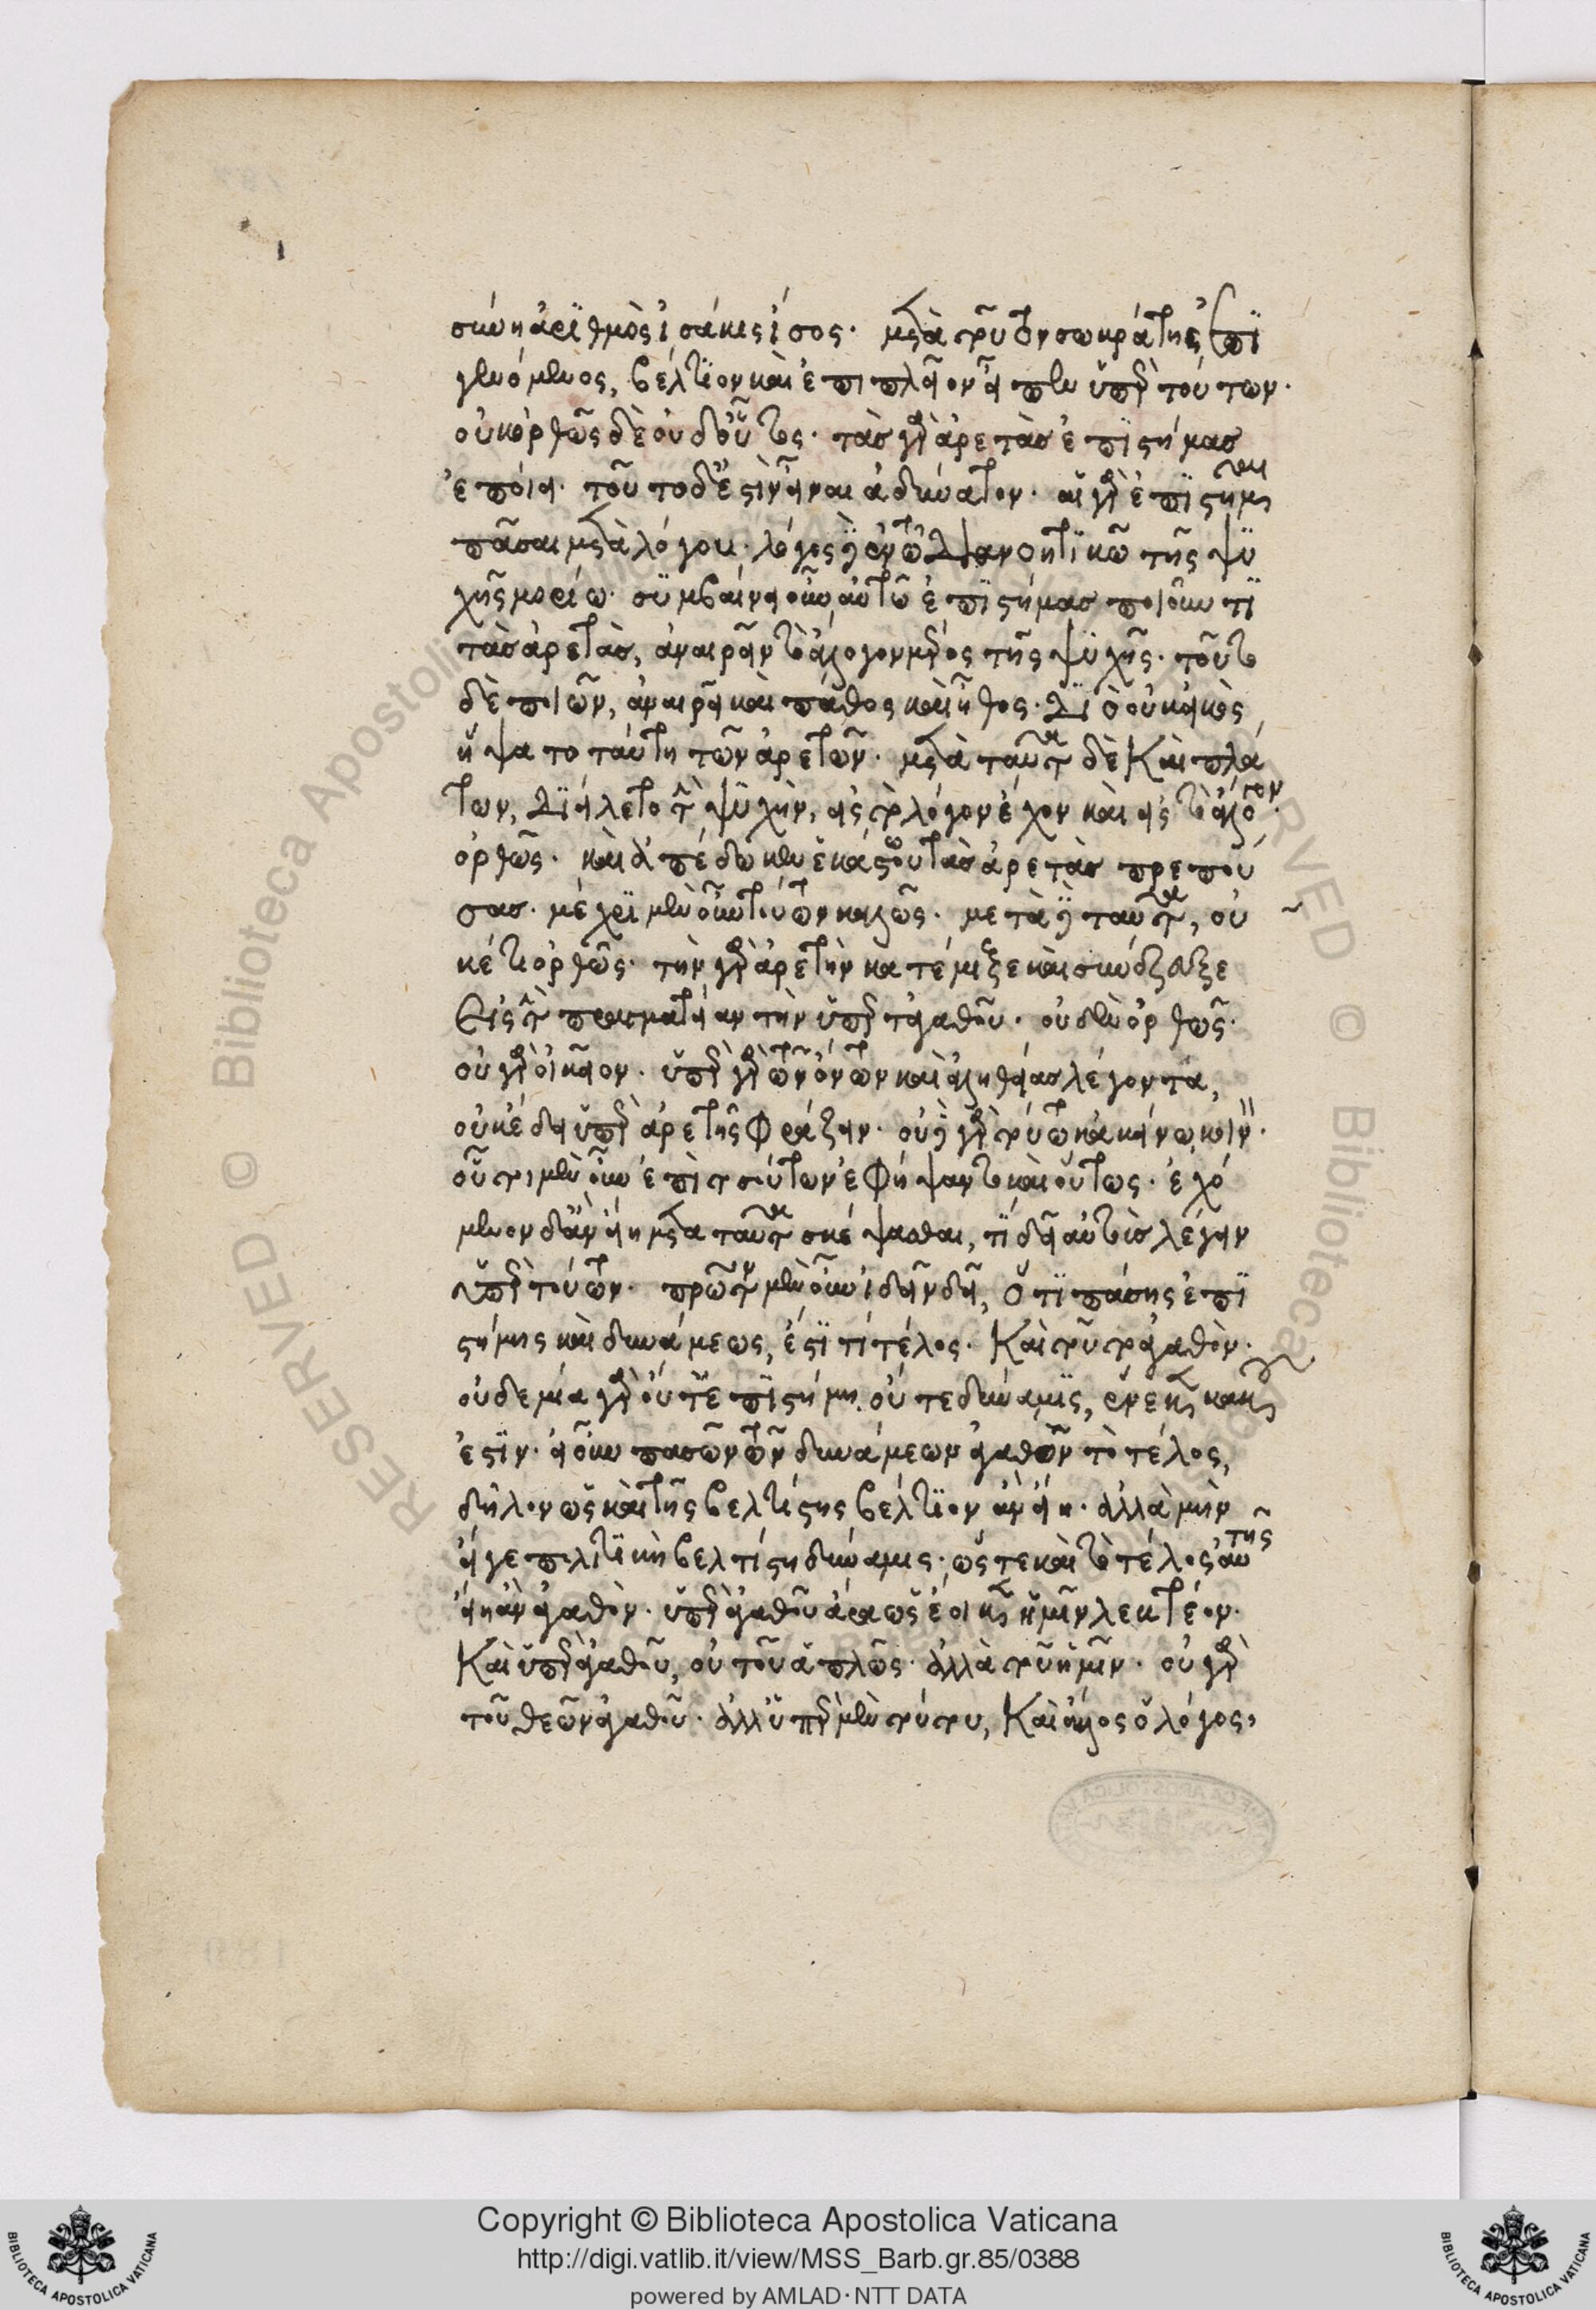 σύνη ἀριθμὸς ἰσάκις ἴσος. μετὰ τοῦτον σωκράτης ἐπι
γενόμενος, βέλτιον καὶ ἐπὶ πλεῖον εἶπεν ὑπὲρ τούτων.
οὐκ ὀρθῶς δὲ οὐδ' οὗτος. τὰς γὰρ ἀρετὰς ἐπιστήμας
ἐποίει. τοῦτο δ' ἐστὶν εἶναι ἀδύνατον. αἱ γὰρ ἐπιστῆμαι
πᾶσαι μετὰ λόγου. λόγος δὲ ἐν τῷ διανοητικῷ τῆς ψυ
χῆς μορίῳ. συμβαίνει οὖν αὐτῷ ἐπιστήμας ποιοῦντι
τὰς ἀρετὰς, ἀναιρεῖν τὸ ἄλογον μέρος τῆς ψυχῆς. τοῦτο
δὲ ποιῶν, ἀναιρεῖ καὶ πάθος καὶ ἦθος. διὸ οὐκ εἰκὸς
ἥψατο ταύτῃ τῶν ἀρετῶν. μετὰ ταῦτα δὲ καὶ πλά
των, διείλετο τὴν ψυχὴν, εἰς τὸ λόγον ἔχον καὶ εἰς τὸ ἄλογον.
ὀρθῶς. καὶ ἀπέδωκεν ἑκάστῳ τὰς ἀρετὰς πρεπού
σας. μέχρι μὲν οὖν τούτων καλῶς. μετὰ δὲ ταῦτα, οὐ
κέτι ὀρθῶς. τὴν γὰρ ἀρετὴν κατέμιξε καὶ συνέζευξε
εἰς τὴν πραγματείαν τὴν ὑπὲρ τἀγαθοῦ. οὐ δὴ ὀρθῶς.
οὐ γὰρ οἰκεῖον. ὑπὲρ γὰρ τῶν ὄντων καὶ ἀληθείας λέγοντα,
οὐκ ἔδει ὑπὲρ ἀρετῆς φράζειν. οὐδὲν γὰρ τούτῳ κἀκείνῳ κοινόν.
οὗτοι μὲν οὖν ἐπὶ τοσοῦτον ἐφήψαντο καὶ οὕτως. ἐχό
μενον δ' ἂν εἴη μετὰ ταῦτα σκέψασθαι, τί δεῖ αὐτοὺς λέγειν
ὑπὲρ τούτων. πρῶτον μὲν οὖν ἰδεῖν δεῖ, ὅτι πάσης ἐπι
στήμης καὶ δυνάμεως, ἐστί τι τέλος. καὶ τοῦτ' ἀγαθόν.
οὐδεμία γὰρ οὔτ' ἐπιστήμη οὔτε δύναμις, ἕνεκεν κακοῦ
ἐστίν. εἰ οὖν πασῶν τῶν δυνάμεων ἀγαθὸν τὸ τέλος,
δῆλον ὡς καὶ τῆς βελτίστης βέλτιον ἂν εἴη. ἀλλὰ μὴν
ἥγε πολιτικὴ βελτίστη δύναμις. ὥστε καὶ τὸ τέλος αὐτῆς
εἴη ἂν ἀγαθόν. ὑπὲρ ἀγαθοῦ ἄρα ὡς ἔοικεν ἡμῖν λεκτέον.
καὶ ὑπὲρ ἀγαθοῦ, οὐ τοῦ ἁπλῶς. ἀλλὰ τοῦ ἡμῖν. οὐ γὰρ
τοῦ θεῶν ἀγαθοῦ. ἀλλ' ὑπὲρ μὲν τούτου, καὶ ἄλλος ὁ λόγος,
Copyright © Biblioteca Apostolica Vaticana
http://digi.vatlib.it/view/MSS_Barb.gr.85/0388
powered by AMLAD·NTT DATA